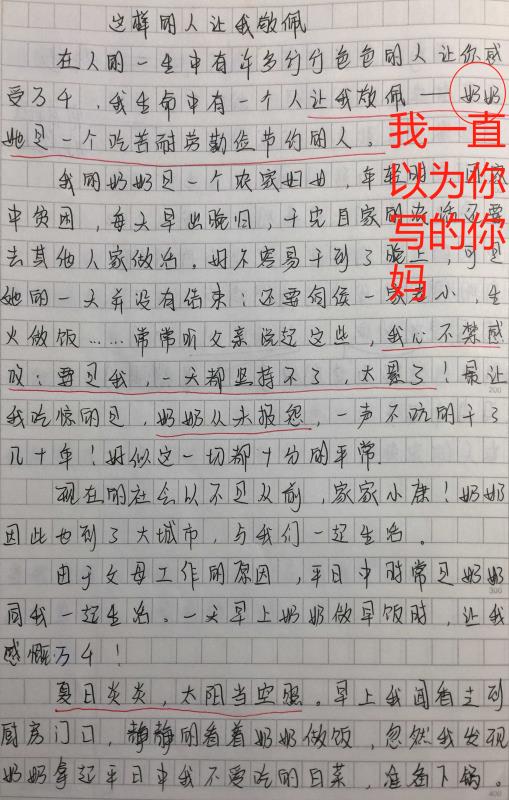 这样的人让我敬佩
在人的一生中有许多行行色色的人让你感
受万千,我生命中有一个人让我敬佩——奶奶
她是一个吃苦耐劳勤俭节约的人。
我一直
以为你
写的你
妈
我的奶奶是一个农家妇女,年轻时,因家
中贫困,每天早出晚归,干完自家的农活还要
去其他人家做活。好不容易干到了晚上,可是
她的一天并没有结束:还要伺候一家老小,生
火做饭……常常听父亲说起这些,我心不禁感
叹:要是我,一天都坚持不了,太累了!最让
我吃惊的是,奶奶从未报怨,一声不吭的干了
几十年!好似这一切都十分的平常.
现在的社会以不是从前,家家小康!奶奶
因此也到了大城市,与我们一起生活。
由于父母工作的原因,平日中时常是奶奶
同我一起生活。一天早上奶奶做早饭时,让我
感慨万千!
夏日炎炎,太阳当空照。早上我闻香走到
厨房门口,静静的看着奶奶做饭,忽然我发现
奶奶拿起平日中我不爱吃的白菜,准备下锅。
200
300
400